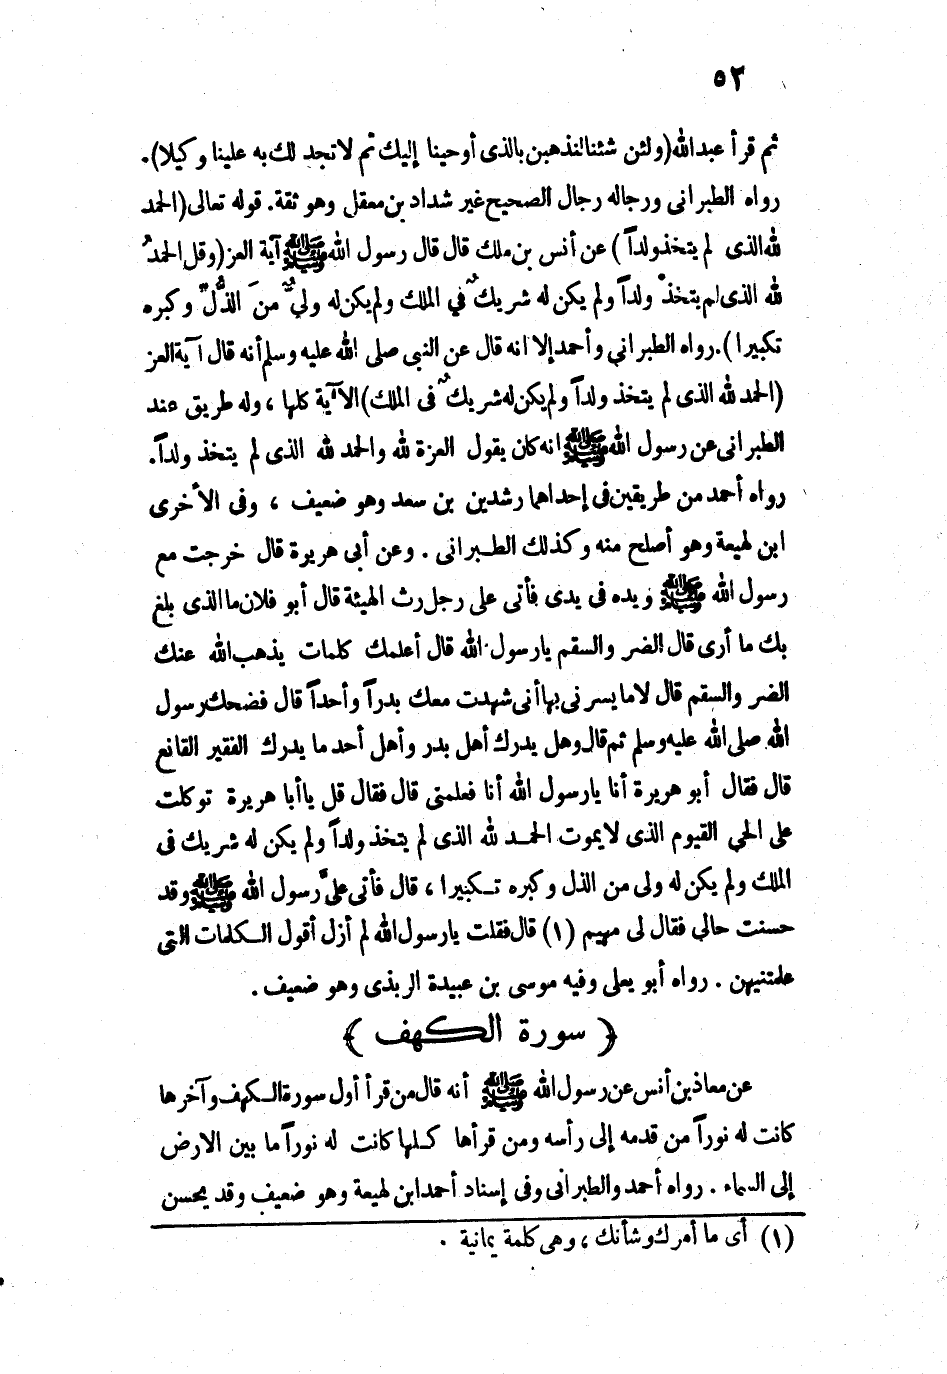 ٥٢
ثم قرأ عبد الله (ولئن شئنا لنذهبن بالذى أوحينا إليك ثم لا تجد لك به علينا وكيلا).
رواه الطبرانى ورجاله رجال الصحيح غير شداد بن معقل وهو ثقة. قوله تعالى (الحمد
لله الذى لم يتخذ ولداً) عن أنس بن ملك قال قال رسول الله ﷺ آية العز (وقل الحمدُ
لله الذى لم يتخذْ ولداً ولم يكن له شريكٌ في الملك ولم يكن له وليٌّ منَ الذُّلِّ وكبره
تكبيرا). رواه الطبراني وأحمد إلا انه قال عن النبى صلى الله عليه وسلم أنه قال آية العز
(الحمد لله الذى لم يتخذ ولداً ولم يكن له شريكٌ فى الملك) الآية كلها ، وله طريق عند
الطبرانى عن رسول الله ﷺ انه كان يقول العزة لله والحمد لله الذى لم يتخذ ولداً.
رواه أحمد من طريقين فى إحداهما رشدين بن سعد وهو ضعيف ، وفى الأخرى
ابن لهيعة وهو أصلح منه وكذلك الطبرانى . وعن أبى هريرة قال خرجت مع
رسول الله ﷺ ويده فى يدى فأتى على رجل رث الهيئة قال أبو فلان ما الذى بلغ
بك ما أرى قال الضر والسقم يارسول الله قال أعلمك كلمات يذهب الله عنك
الضر والسقم قال لا ما يسرنى بها أنى شهدت معك بدراً وأحداً قال فضحك رسول
الله صلى الله عليه وسلم ثم قال وهل يدرك أهل بدر وأهل أحد ما يدرك الفقير القانع
قال فقال أبو هريرة أنا يارسول الله أنا فعلمنى قال فقال قل يا أبا هريرة توكلت
على الحي القيوم الذى لا يموت الحمد لله الذى لم يتخذ ولداً ولم يكن له شريك فى
الملك ولم يكن له ولى من الذل وكبره تكبيرا ، قال فأتى علىَّ رسول الله ﷺ وقد
حسنت حالي فقال لى مهيم (١) قال فقلت يارسول الله لم أزل أقول الكلمات التى
علمتنيهن . رواه أبو يعلى وفيه موسى بن عبيدة الربذى وهو ضعيف .
﴿ سورة الكهف ﴾
عن معاذ بن أنس عن رسول الله ﷺ أنه قال من قرأ أول سورة الكهف وآخرها
كانت له نوراً من قدمه إلى رأسه ومن قرأها كلها كانت له نوراً ما بين الارض
إلى السماء . رواه أحمد والطبرانى وفى إسناد أحمد ابن لهيعة وهو ضعيف وقد يحسن
(١) أى ما أمرك وشأنك ، وهى كلمة يمانية .